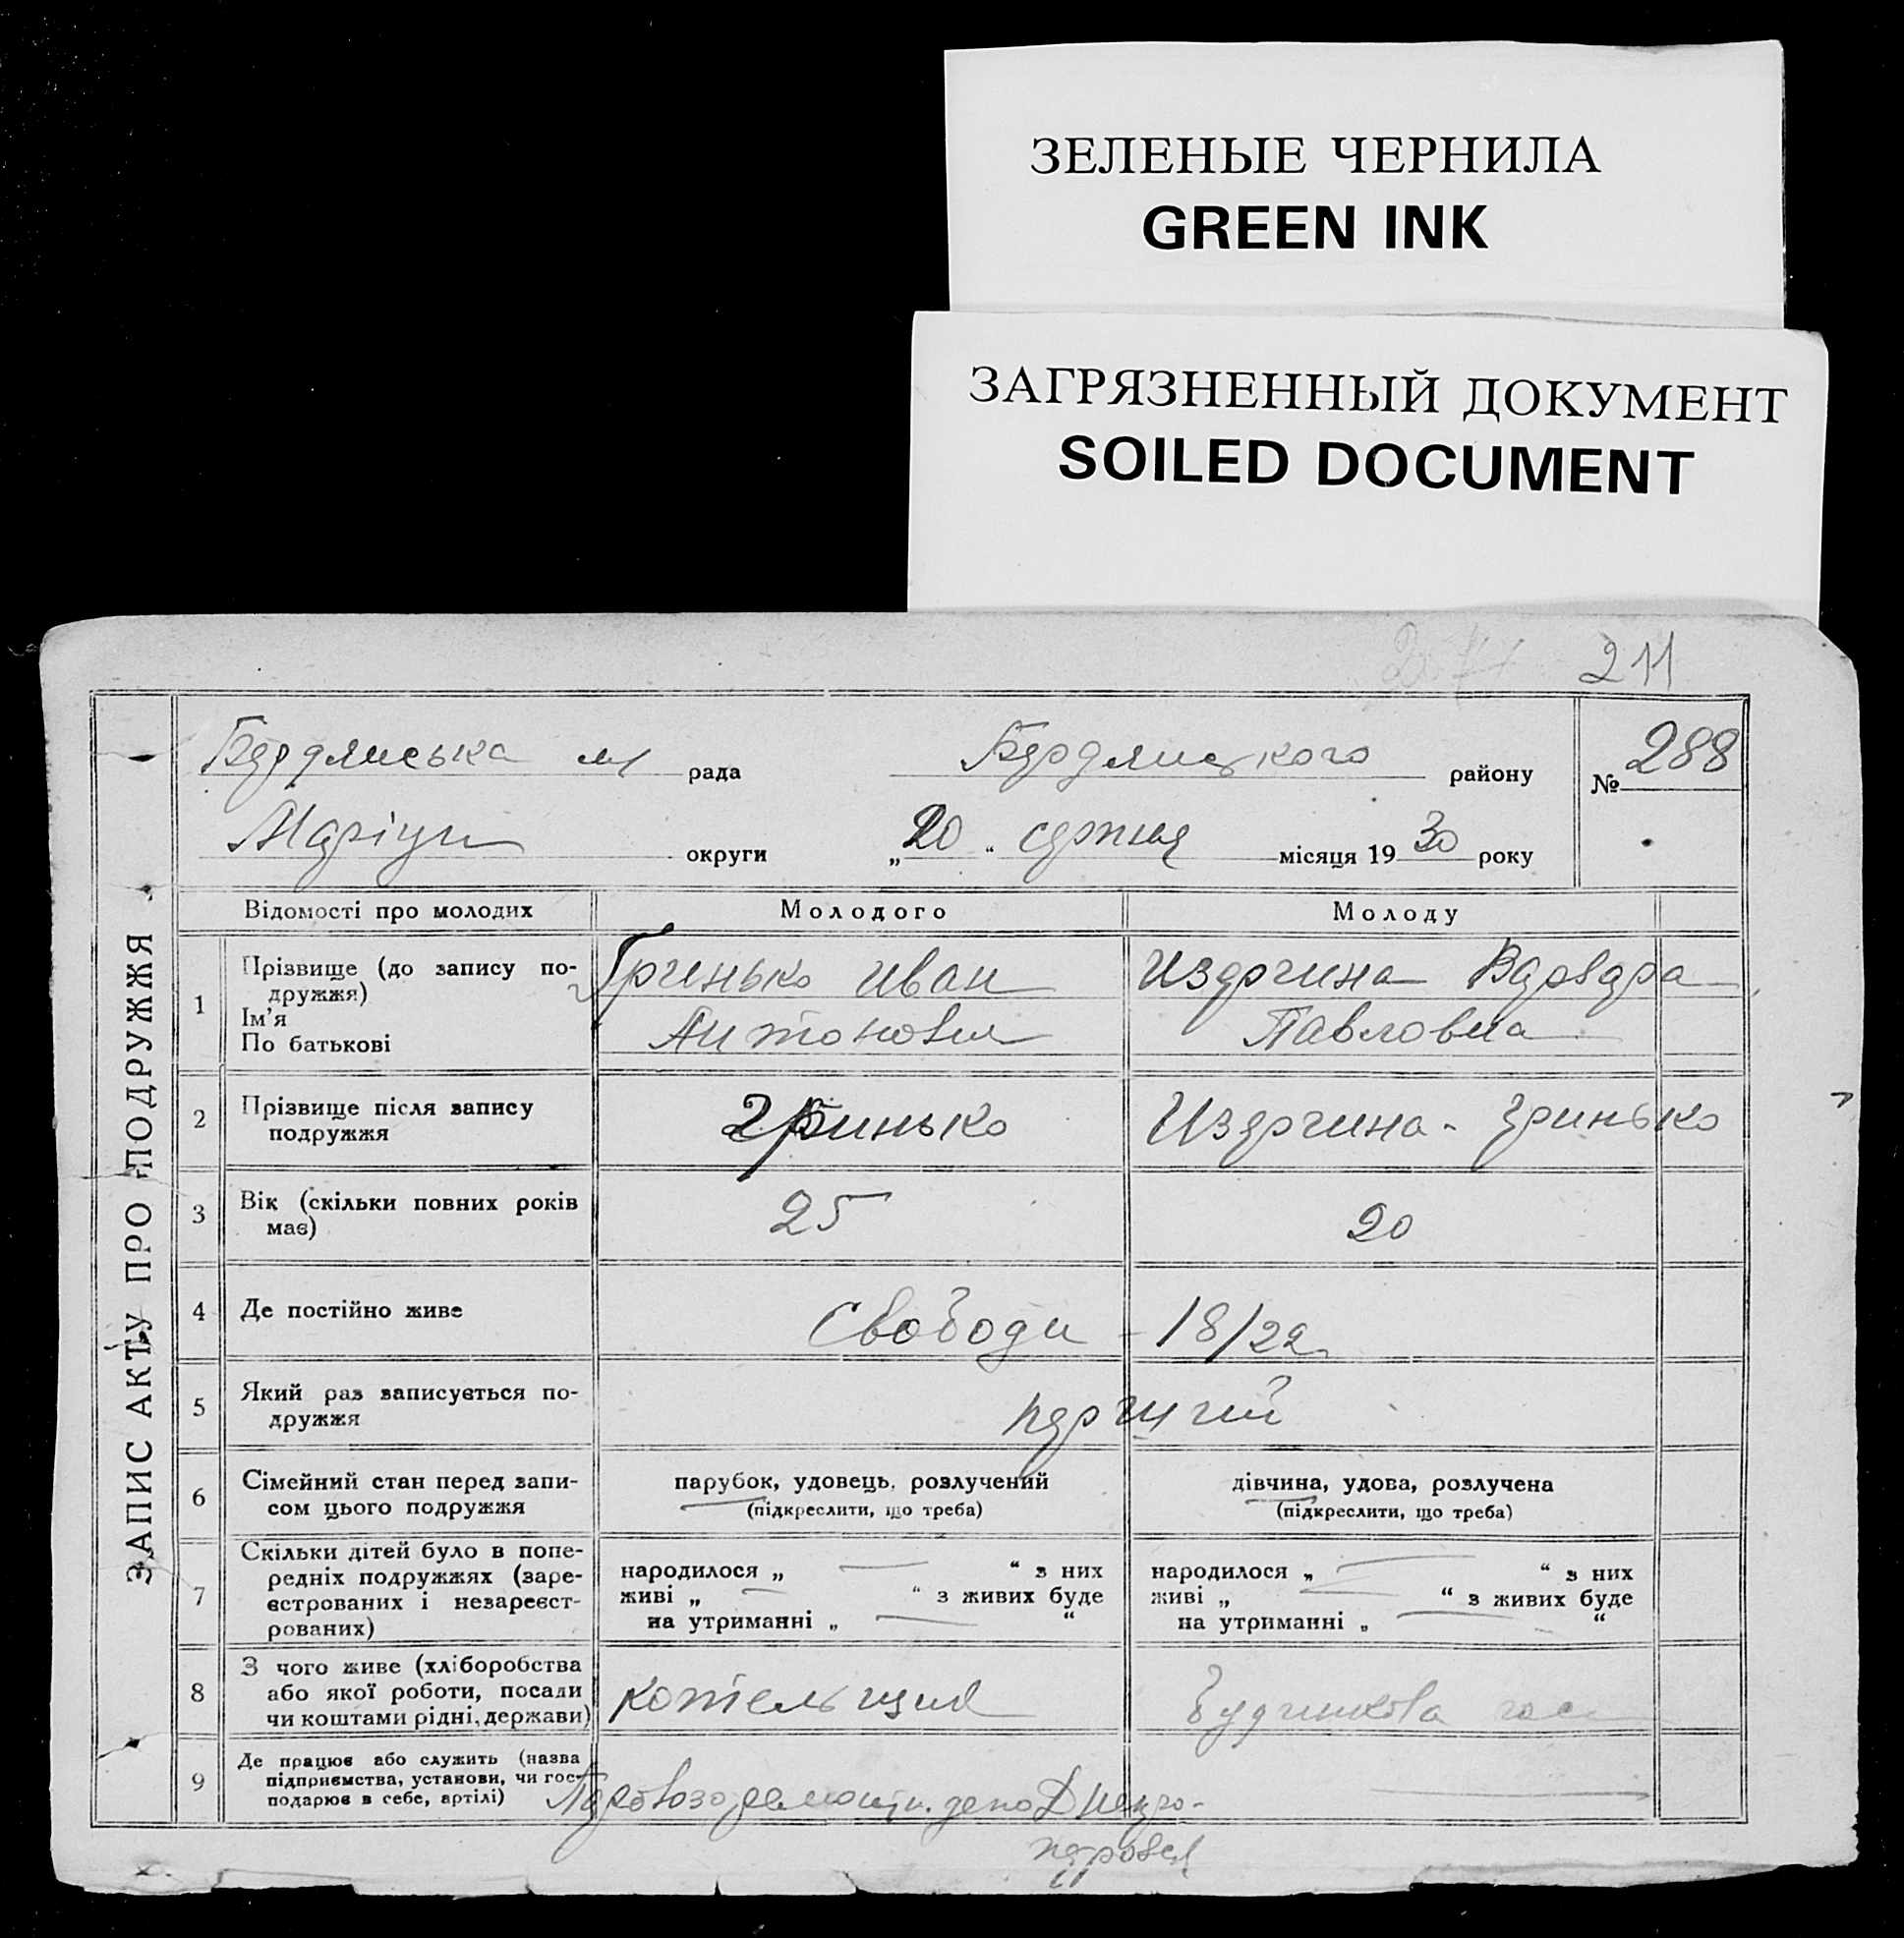 ЗЕЛЕНЫЕ ЧЕРНИЛА
GREEN INK
ЗАГРЯЗНЕННЫЙ ДОКУМЕНТ
SOILED DOCUMENT
211
Бердянська м рада Бердянського району № 288
Маріуп округи „20“ серпня місяця 1930 року
ЗАПИС АКТУ ПРО ПОДРУЖЖЯ
Відомості про молодих Молодого Молоду
1 Прізвище (до запису по-
дружжя)
Ім'я
По батькові
Гринько Иван
Антонович
Варвара
Павловна
2 Прізвище після запису
подружжя
Гринько
Гринько
3 Вік (скільки повних років
має)
25
20
4 Де постійно живе
Свободи - 18/22
5 Який раз записується по-
дружжя
перший
6 Сімейний стан перед запи-
сом цього подружжя
парубок, удовець, розлучений
(підкреслити, що треба)
дівчина, удова, розлучена
(підкреслити, що треба)
7 Скільки дітей було в попе-
редніх подружжях (заре-
єстрованих і незареєст-
рованих)
народилося „ — “ з них
живі „ — “ з живих буде
на утриманні „ — “
народилося „ — “ з них
живі „ — “ з живих буде
на утриманні „ — “
8 З чого живе (хліборобства
або якої роботи, посади
чи коштами рідні, держави)
котельщик
9 Де працює або служить (назва
підприємства, установи, чи гос-
подарює в себе, артілі)
депо Днепро-